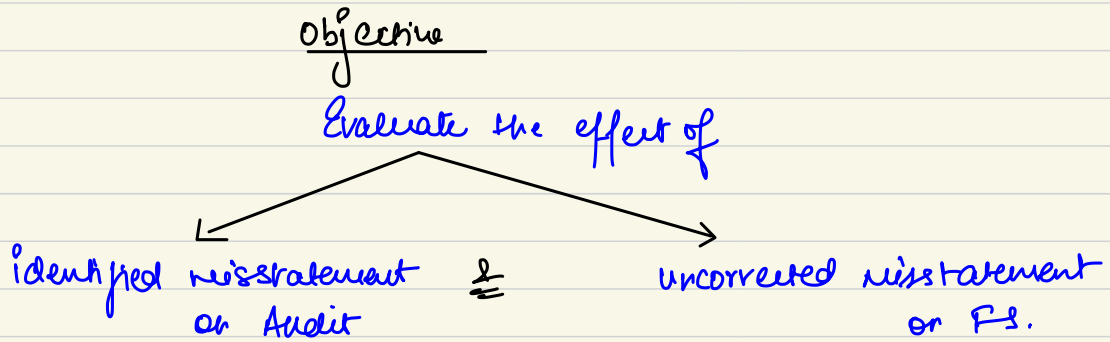 Objective
Evaluate the effect of
identified misstatement & uncorrected misstatement
on Audit on FS.